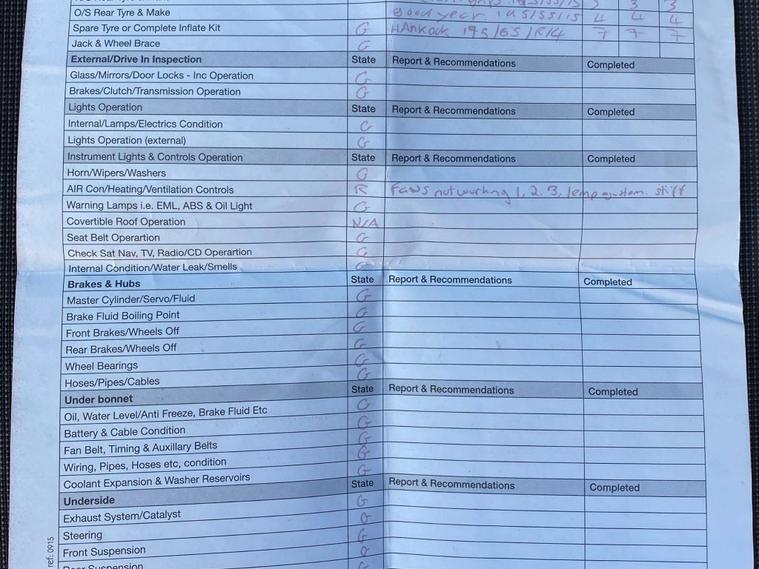 O/S Rear Tyre & Make Goodyear 195/55/15 4 4 4
Spare Tyre or Complete Inflate Kit G HAnkook 195/65/R14 7 7 7
Jack & Wheel Brace G
External/Drive In Inspection State Report & Recommendations Completed
Glass/Mirrors/Door Locks - Inc Operation G
Brakes/Clutch/Transmission Operation G
Lights Operation State Report & Recommendations Completed
Internal/Lamps/Electrics Condition G
Lights Operation (external) G
Instrument Lights & Controls Operation State Report & Recommendations Completed
Horn/Wipers/Washers G
AIR Con/Heating/Ventilation Controls R Fans not working 1, 2, 3, temp system stiff
Warning Lamps i.e. EML, ABS & Oil Light G
Covertible Roof Operation N/A
Seat Belt Operartion G
Check Sat Nav, TV, Radio/CD Operartion G
Internal Condition/Water Leak/Smells G
Brakes & Hubs State Report & Recommendations Completed
Master Cylinder/Servo/Fluid G
Brake Fluid Boiling Point G
Front Brakes/Wheels Off G
Rear Brakes/Wheels Off G
Wheel Bearings G
Hoses/Pipes/Cables G
Under bonnet State Report & Recommendations Completed
Oil, Water Level/Anti Freeze, Brake Fluid Etc G
Battery & Cable Condition G
Fan Belt, Timing & Auxillary Belts G
Wiring, Pipes, Hoses etc, condition G
Coolant Expansion & Washer Reservoirs G
Underside State Report & Recommendations Completed
Exhaust System/Catalyst G
Steering G
Front Suspension G
Rear Suspension G
ref: 0915